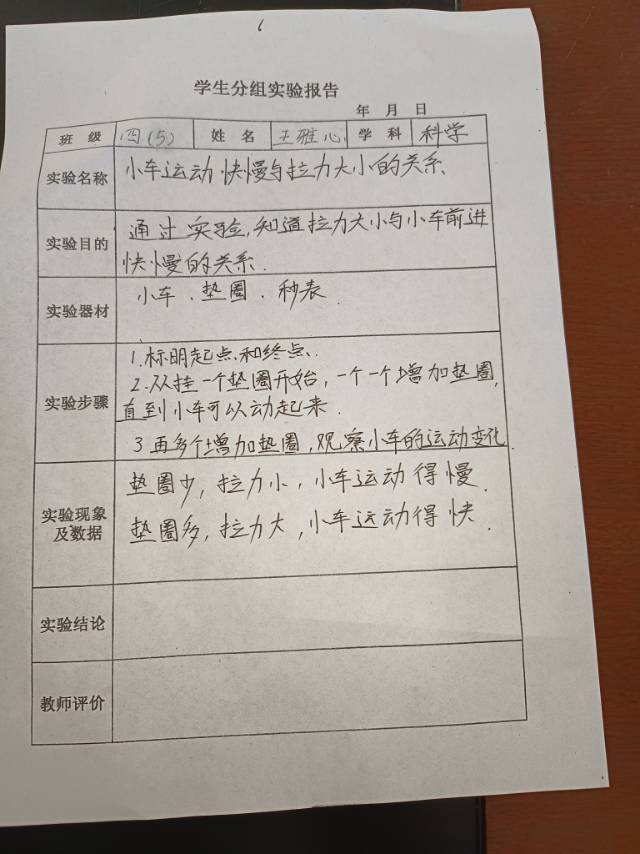 6
学生分组实验报告
年 月 日
班 级 四(5) 姓 名 王雅心 学 科 科学
实验名称 小车运动快慢与拉力大小的关系
实验目的 通过实验,知道拉力大小与小车前进
快慢的关系.
实验器材 小车、垫圈、秒表.
实验步骤 1.标明起点和终点、
2.从挂一个垫圈开始,一个一个增加垫圈,
直到小车可以动起来.
3再多个增加垫圈,观察小车的运动变化
实验现象及数据 垫圈少,拉力小,小车运动得慢.
垫圈多,拉力大,小车运动得快.
实验结论
教师评价